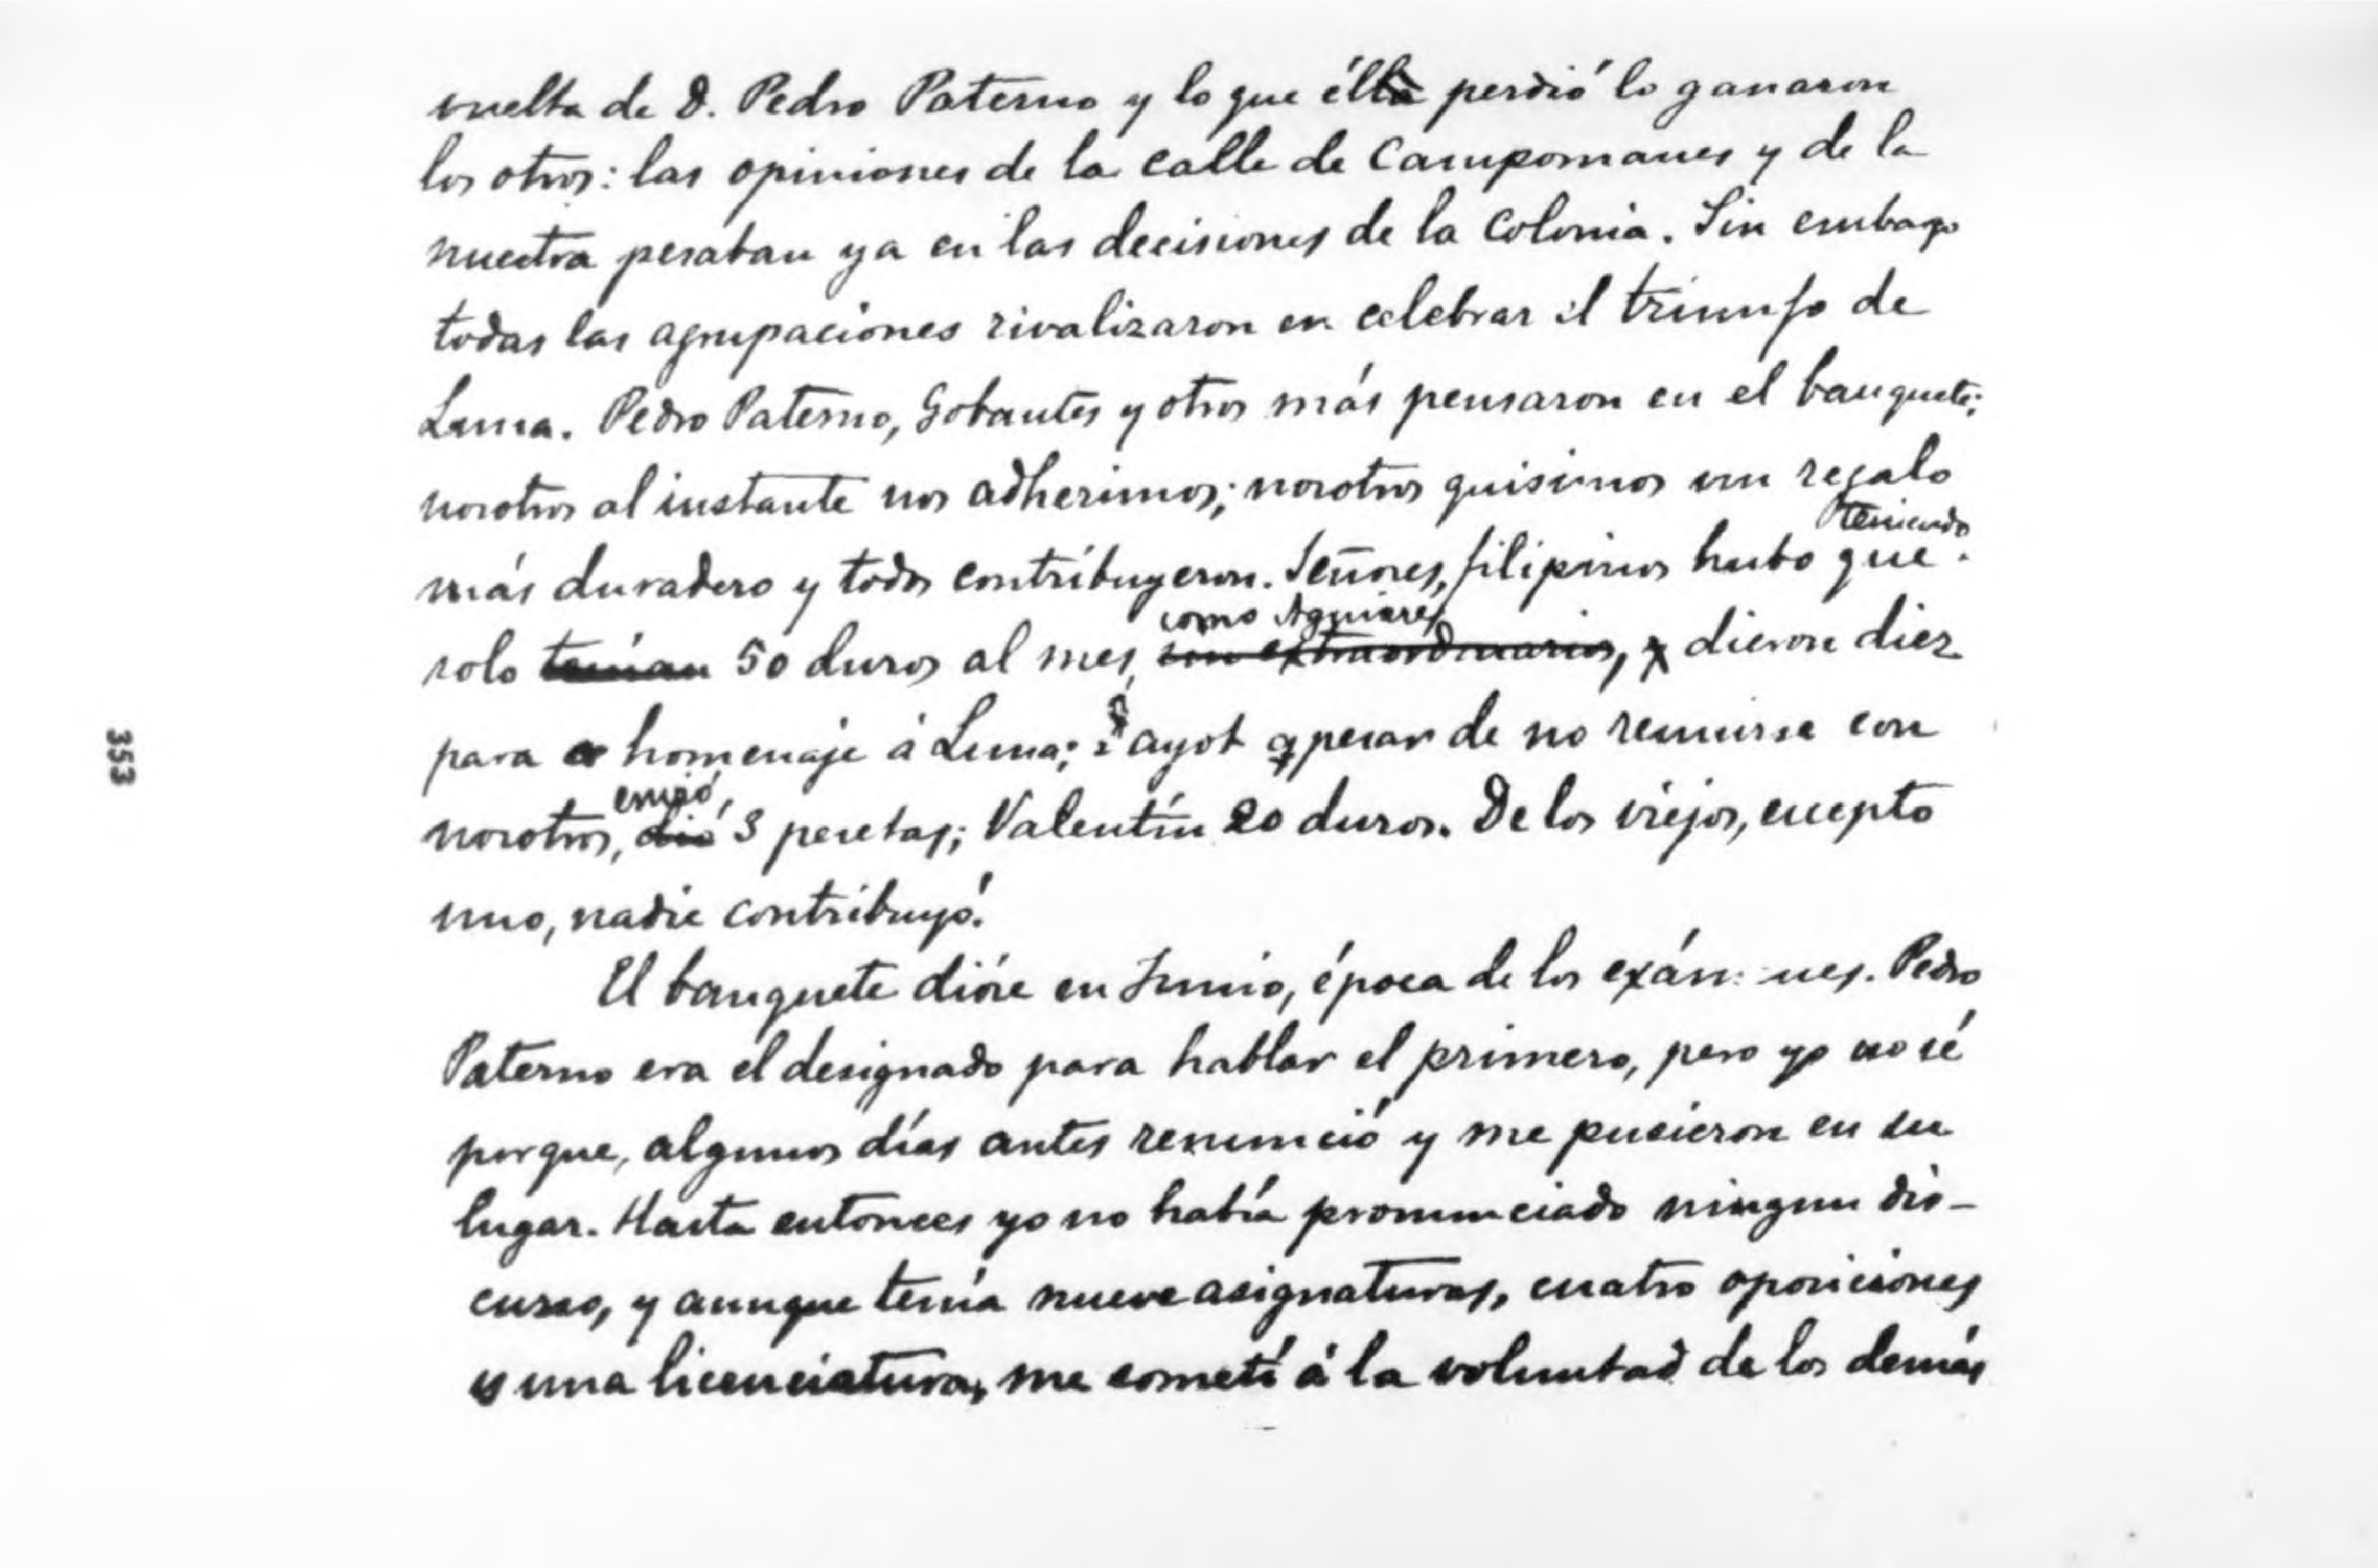 vuelta de D. Pedro Paterno y lo que élla perdió lo ganaron
los otros: las opiniones de la calle de Campomanes y de la
nuestra pesaban ya en las decisiones de la Colonia. Sin embargo
todas las agrupaciones rivalizaron en celebrar el triunfo de
Luna. Pedro Paterno, Gobantes y otros más pensaron en el banquete;
nosotros al instante nos adherimos; nosotros quisimos un regalo
teniendo
más duradero y todos contribuyeron. Señores, filipinos hubo que
como Aguirre,
solo tenían 50 duros al mes, sin extraordinarios, y dieron diez
para homenaje á Luna; Sayot apesar de no reunirse con
envió,
nosotros, dió 3 pesetas; Valentín 20 duros. De los viejos, excepto
uno, nadie contribuyó!
El banquete dióse en Junio, época de los exámenes. Pedro
Paterno era el designado para hablar el primero, pero yo no sé
porque, algunos días antes renunció y me pusieron en su
lugar. Hasta entonces yo no había pronunciado ningun dis-
curso, y aunque tenía nueve asignaturas, cuatro oposiciones
y una licenciatura, me sometí á la voluntad de los demás
353